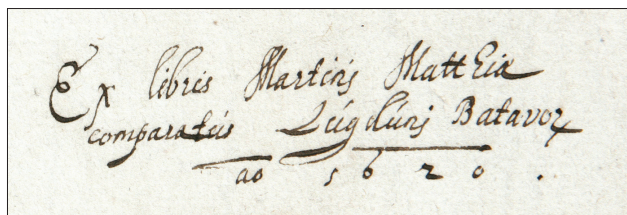 Ex libris Martini Matthiæ
comparatus Lugduni Batavor
ao 1620.